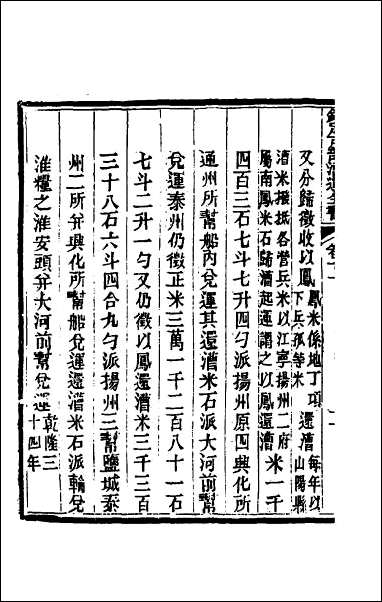 又分歸徵收以鳳鳳米係地丁項下兵孤等米還漕每年以山陽縣
漕米撥抵各營兵米以江寧揚州二府屬南鳳米石歸漕起運謂之以鳳還漕米一千
四百三石七斗七升四勺派揚州原四興化所
通州所幫船內兌運其還漕米石派大河前幫
兌運泰州仍徵正米三萬一千二百八十一石
七斗二升一勺又仍徵以鳳還漕米三千三百
三十八石六斗四合九勺派揚州三幫鹽城泰
州二所并興化所幫船兌運還漕米石派輪兌
淮糧之淮安頭并大河前幫兌運乾隆三十四年